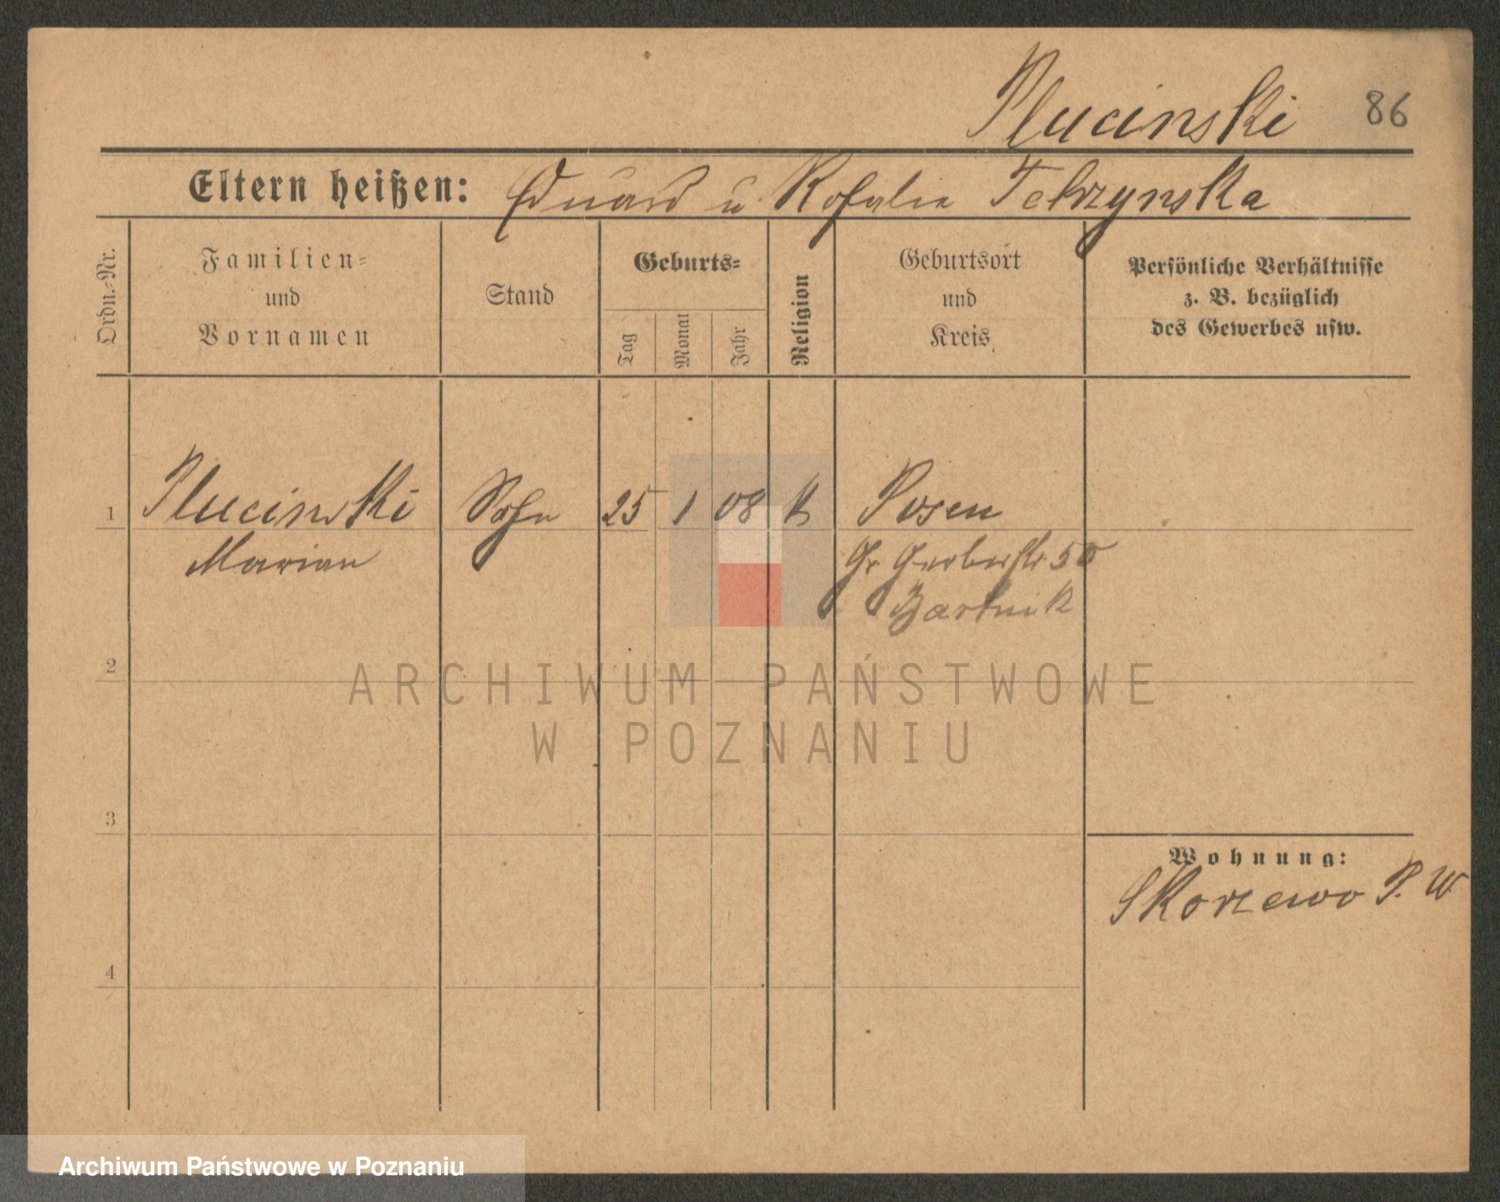 Plucinski 86
Eltern heißen: Eduard u. Rosalie Tehrzynska
Ordn.-Nr.
Familien-
und
Vornamen
Stand
Geburts-
Tag
Monat
Jahr
Religion
Geburtsort
und
Kreis
Persönliche Verhältnisse
z. B. bezüglich
des Gewerbes usw.
1 Plucinski Sohn 25 1 08 k Posen
Marian Gr. Gerberstr. 50
2
3
4
Wohnung:
Skorzewo P. W
ARCHIWUM PAŃSTWOWE
W POZNANIU
Archiwum Państwowe w Poznaniu